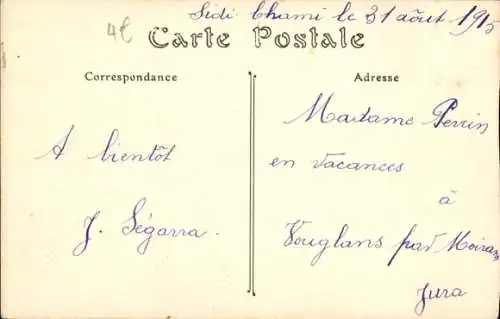 Sidi Chami le 31 août 1915
4€
Carte Postale
Correspondance
Adresse
A bientôt
J. Ségarra.
Madame Perrin
en vacances
à
Vouglans par Moirans
Jura